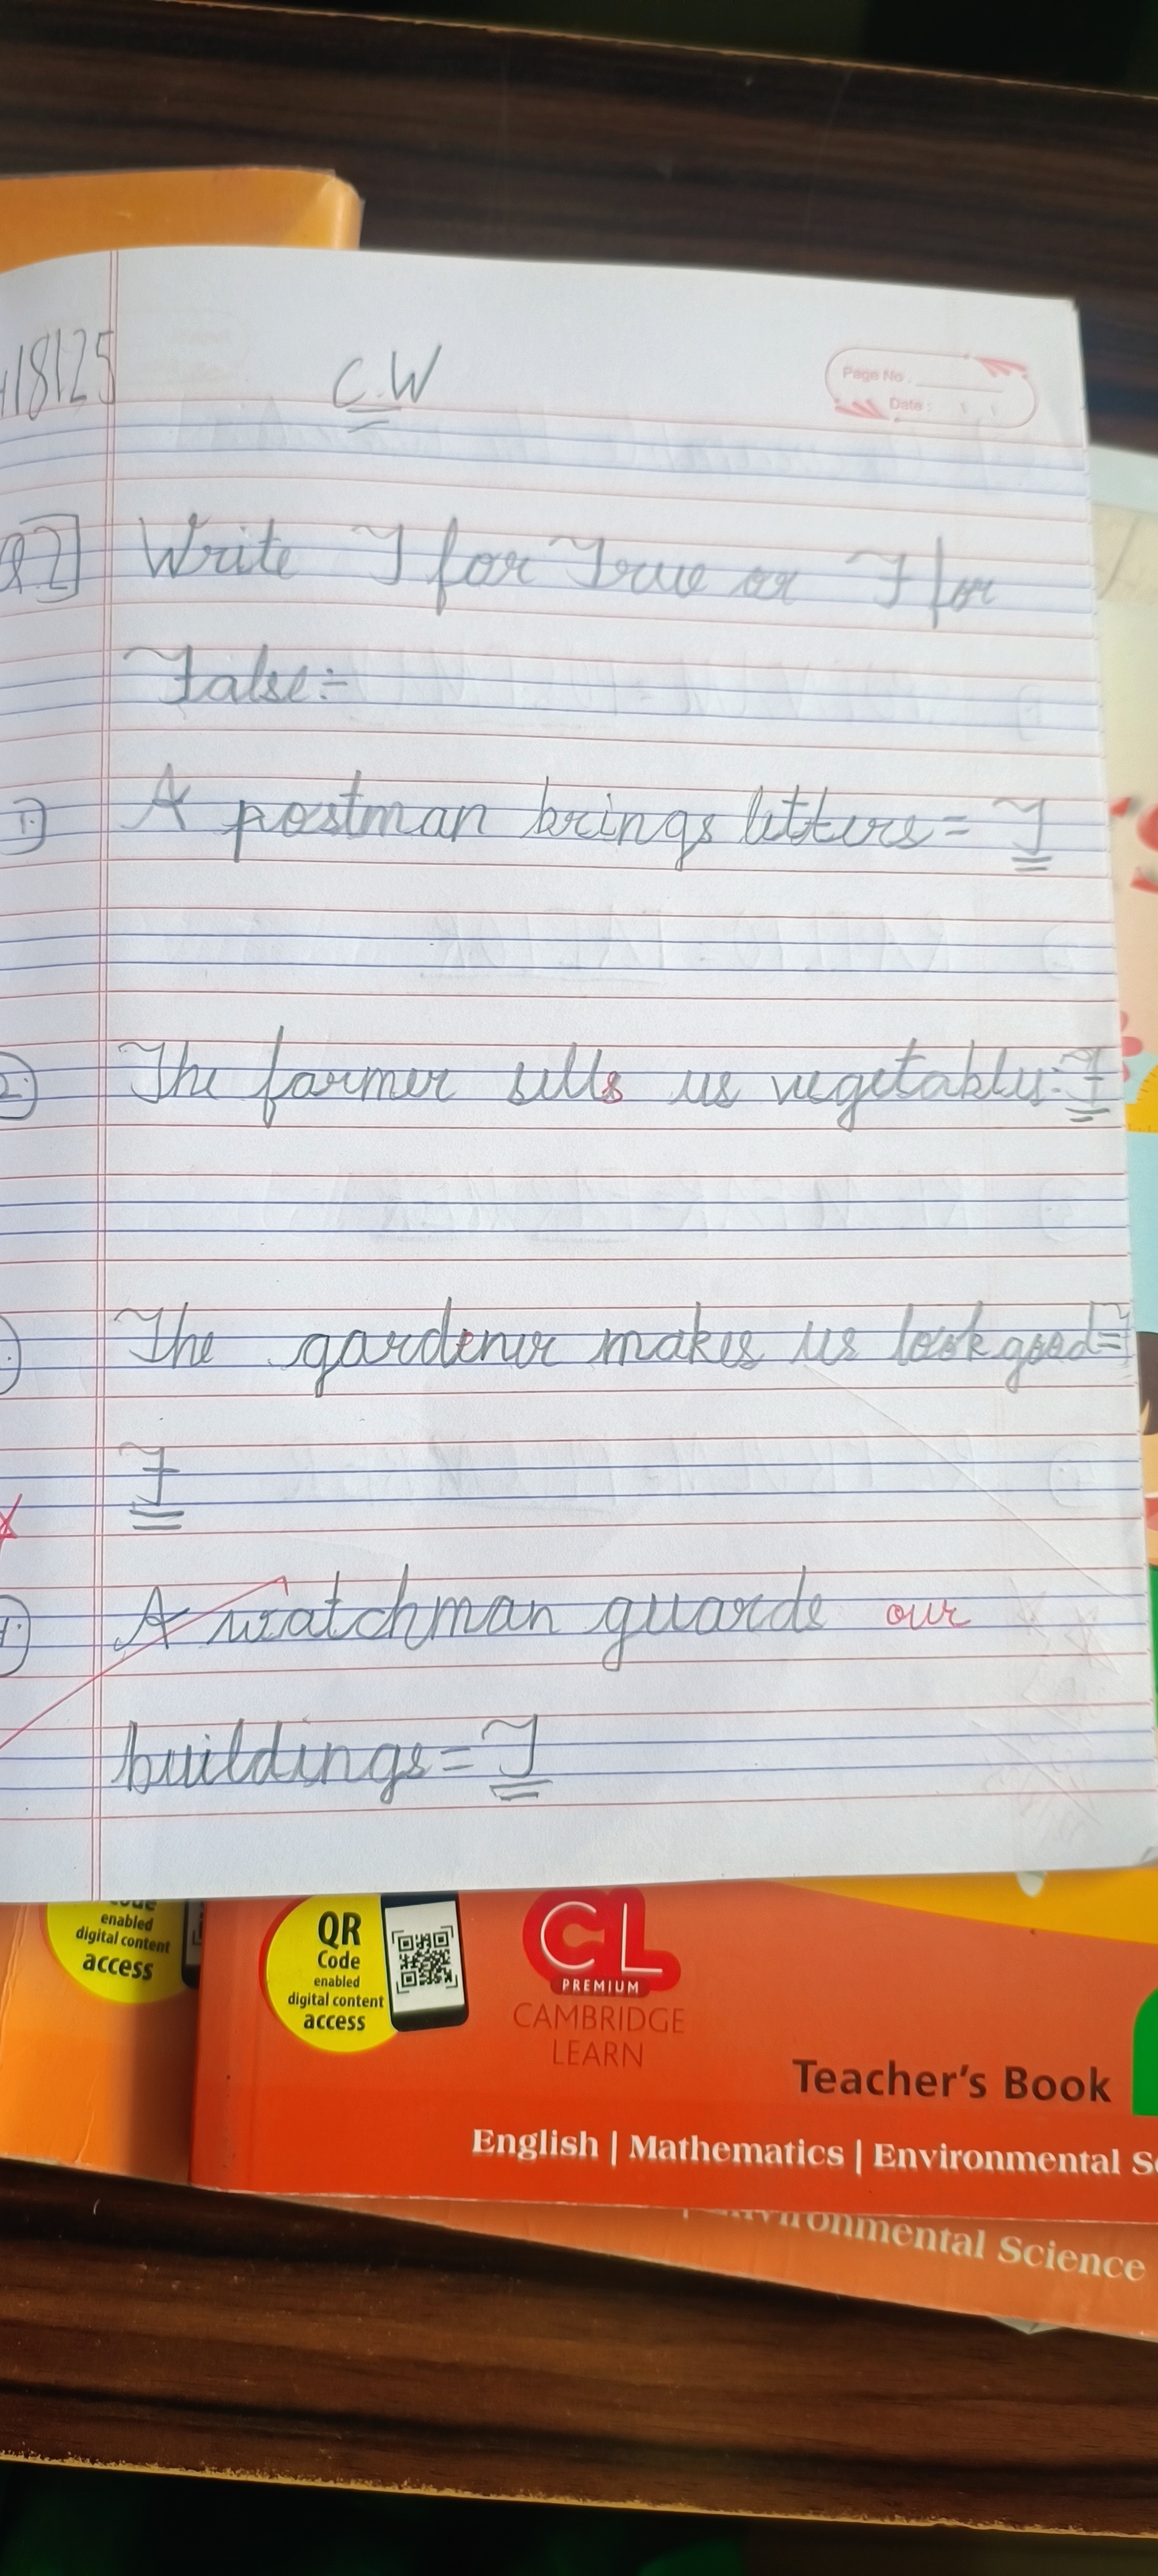 18125
C.W
Page No.
Date:
Q2] Write T for True or F for
False:-
1) A postman brings letters = T
2.) The farmer sells us vegetables = F
The gardener makes us look good =
F
A watchman guards our
buildings = T
enabled
digital content
access
QR
Code
enabled
digital content
access
CL
PREMIUM
CAMBRIDGE
LEARN
Teacher's Book
English | Mathematics | Environmental
Environmental Science